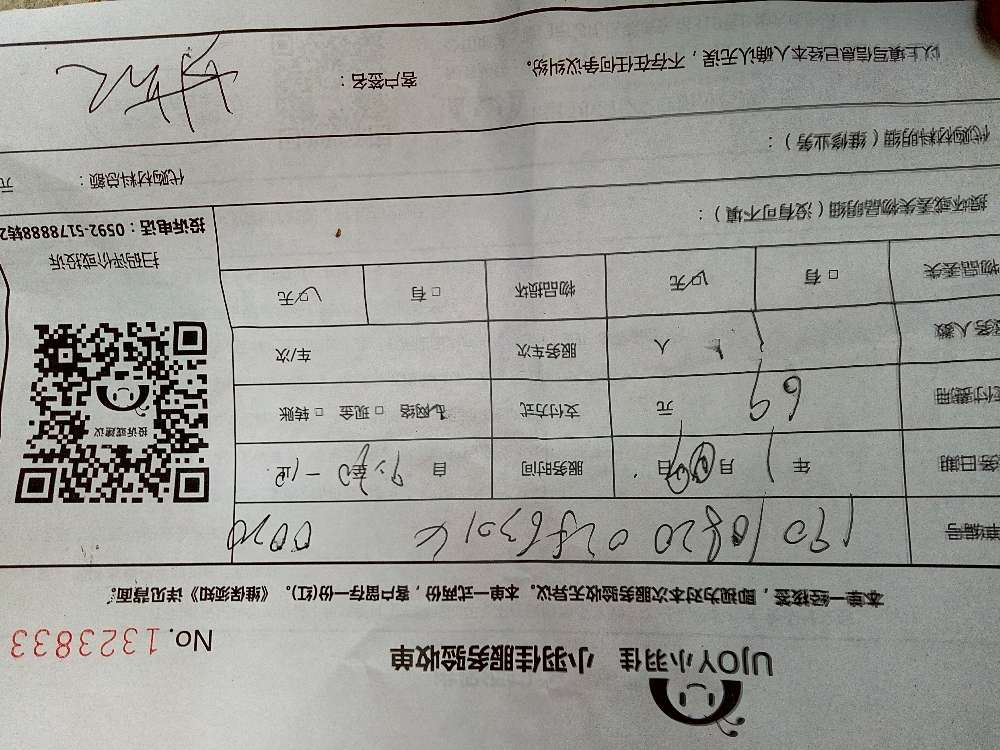 UJOY小羽佳 小羽佳服务验收单
No.1323833
本单一经核签，即视为对本次服务验收无异议。本单一式两份，客户留存一份(红)。《维保须知》详见背面。
单编号
务日期 年 1 月 日 服务时间 自
支付费用 69 元 支付方式 网络 □ 现金 □ 转账
服务人数 1 人 服务车次 车/次
物品丢失 □ 有 □ 无 物品损坏 □ 有 □ 无
投诉或建议
扫码评价或投诉
投诉电话：0592-5178888转2
损坏或丢失物品明细（没有可不填）：
代购材料明细（维修业务）：
代购材料总额： 元
以上填写信息已经本人确认无误，不存在任何争议纠纷。 客户签名：